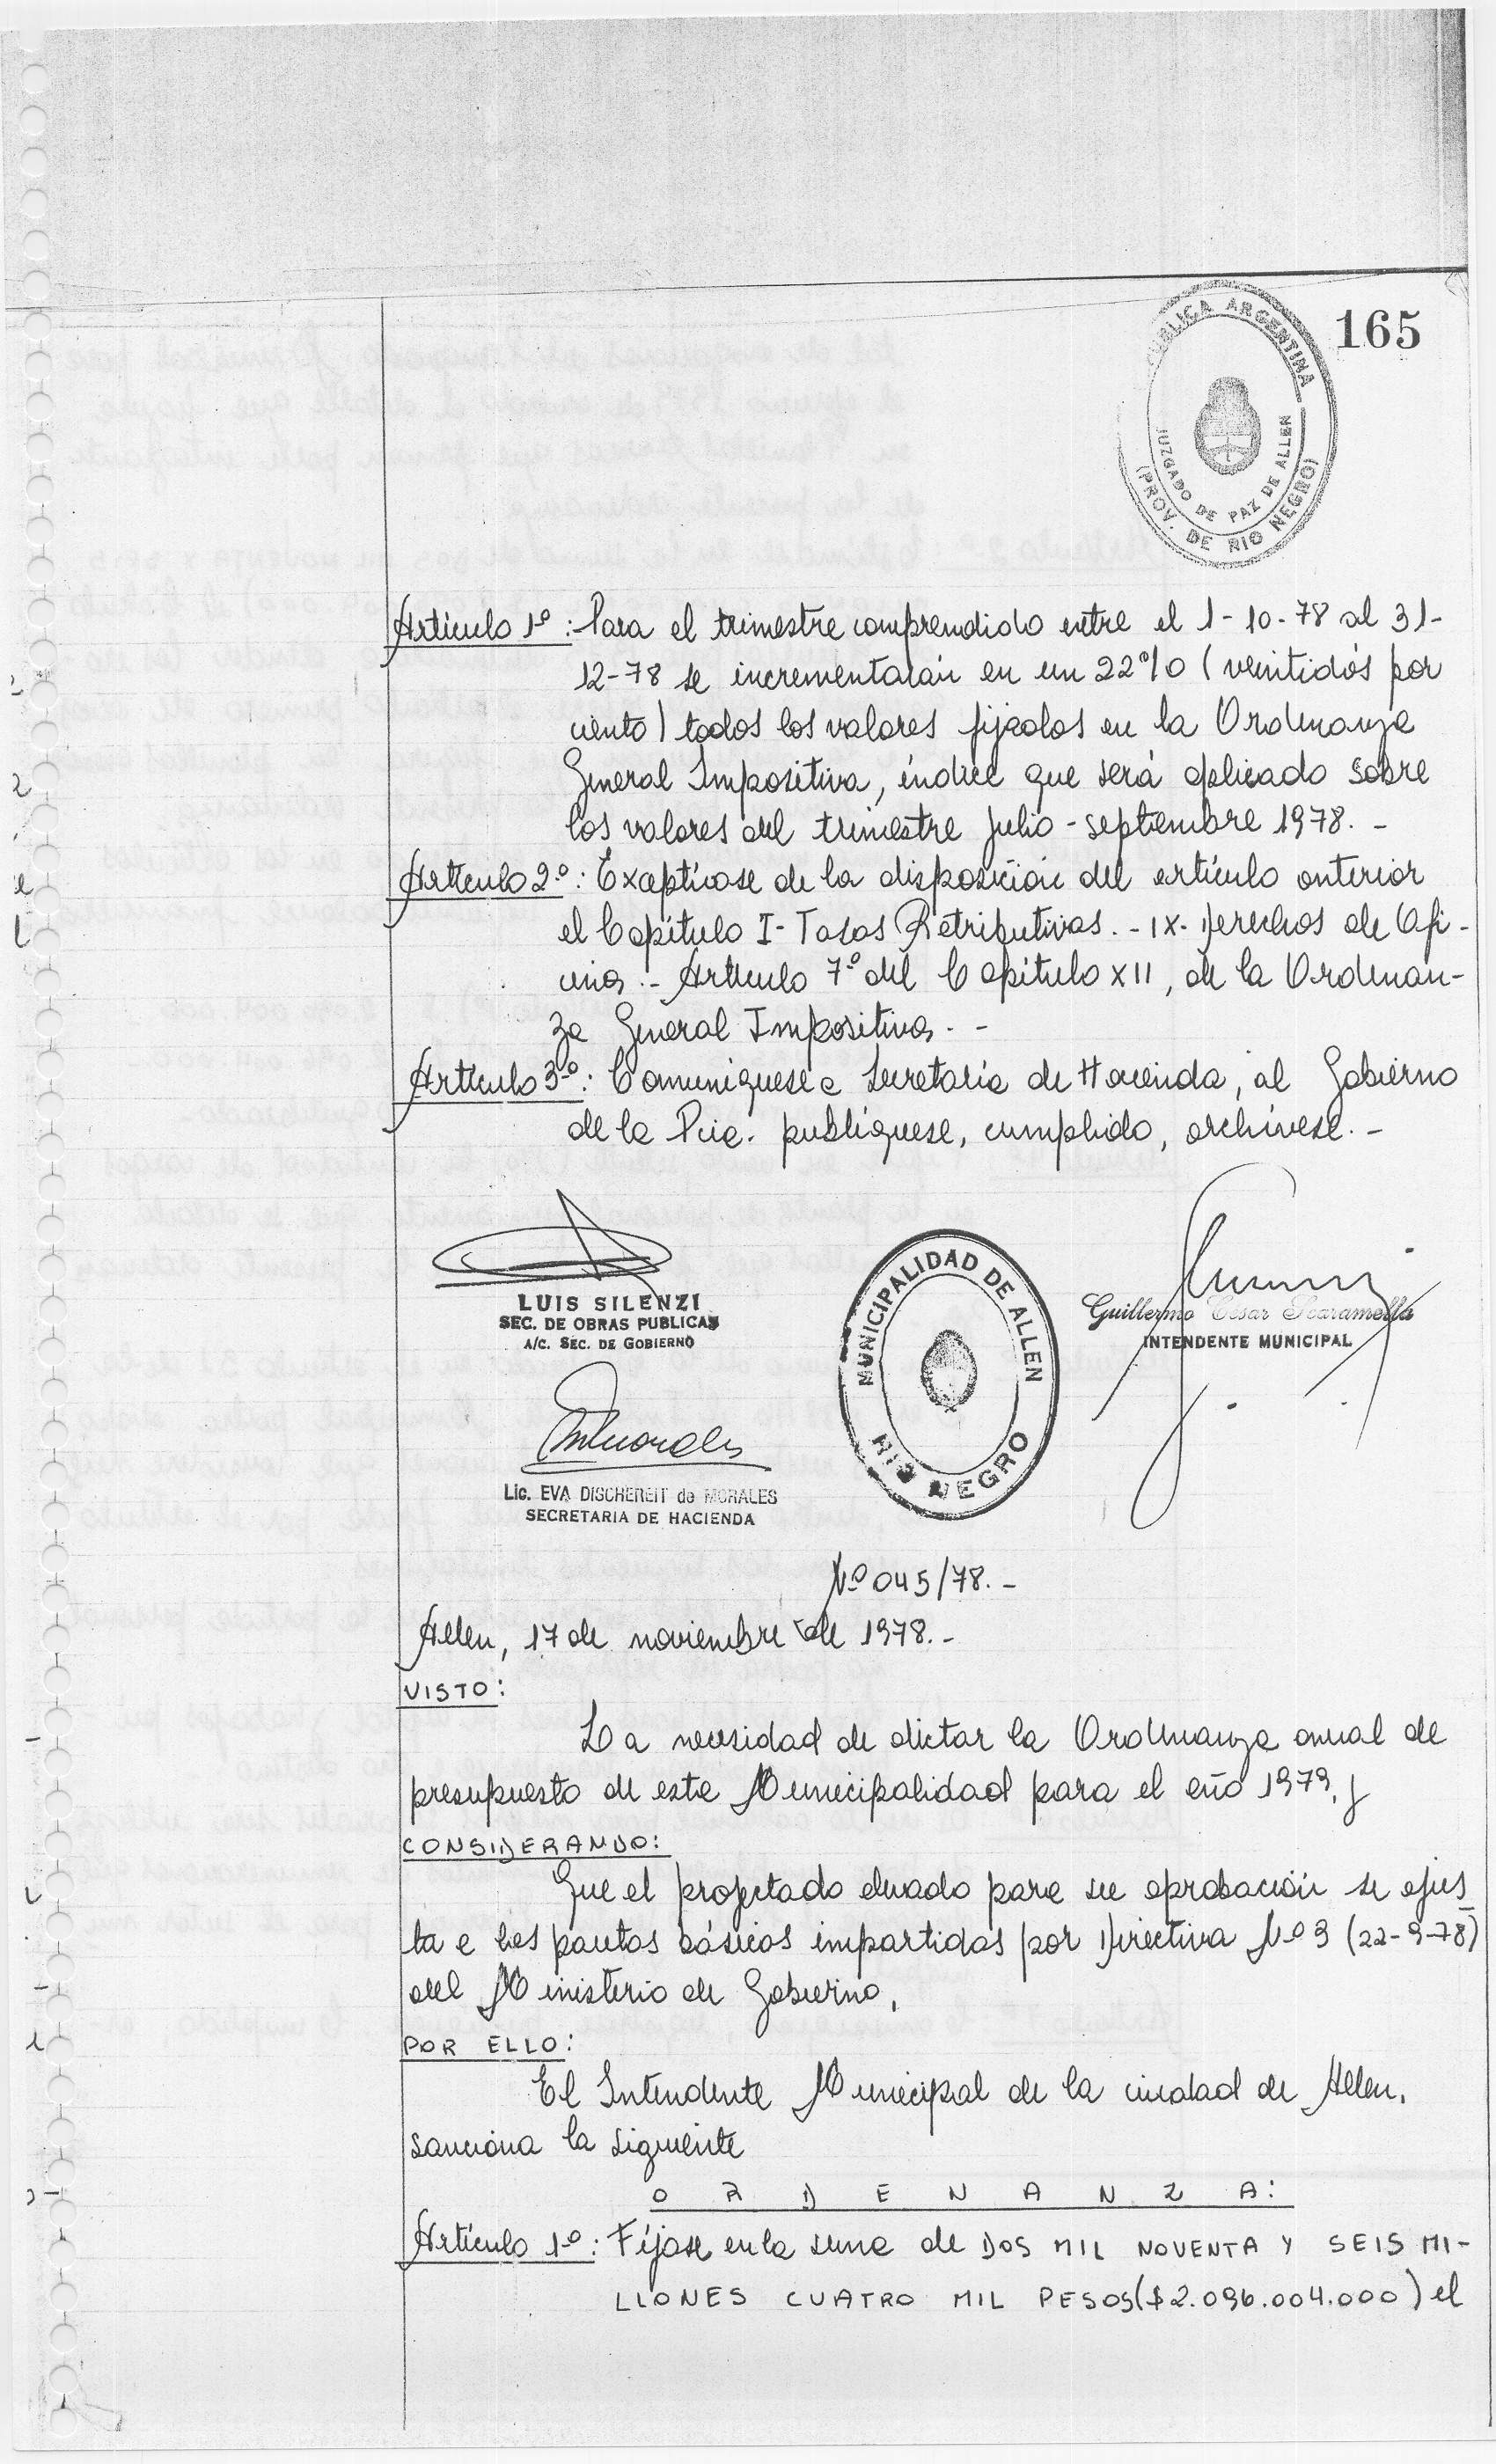 165
REPUBLICA ARGENTINA
JUZGADO DE PAZ DE ALLEN
(PROV. DE RIO NEGRO)
Artículo 1º: Para el trimestre comprendido entre el 1-10-78 al 31-
12-78 se incrementarán en un 22% (veintidós por
ciento) todos los valores fijados en la Ordenanza
General Impositiva, índice que será aplicado sobre
los valores del trimestre julio-septiembre 1978.-
Artículo 2º: Exceptúase de la disposición del artículo anterior
el Capítulo I- Tasas Retributivas.-IX-Derechos de Ofi-
cina.- Artículo 7º del Capítulo XII, de la Ordenan-
za General Impositiva.-
Artículo 3º: Comuníquese a Secretaría de Hacienda, al Gobierno
de la Pcia. publíquese, cumplido, archívese.-
LUIS SILENZI
SEC. DE OBRAS PUBLICAS
A/C. SEC. DE GOBIERNO
MUNICIPALIDAD DE ALLEN
RIO NEGRO
Guillermo Cesar Scaramella
INTENDENTE MUNICIPAL
Lic. EVA DISCHEREIT de MORALES
SECRETARIA DE HACIENDA
Nº 045/78.-
Allen, 17 de noviembre de 1978.-
VISTO:
La necesidad de dictar la Ordenanza anual de
presupuesto de esta Municipalidad para el año 1979, y
CONSIDERANDO:
Que el proyectado elevado para su aprobación se ajus
ta a las pautas básicas impartidas por Directiva Nº 3 (22-9-78)
del Ministerio de Gobierno,
POR ELLO:
El Intendente Municipal de la ciudad de Allen,
sanciona la siguiente
O R D E N A N Z A:
Artículo 1º: Fíjase en la suma de DOS MIL NOVENTA Y SEIS MI-
LLONES CUATRO MIL PESOS ($2.096.004.000) el